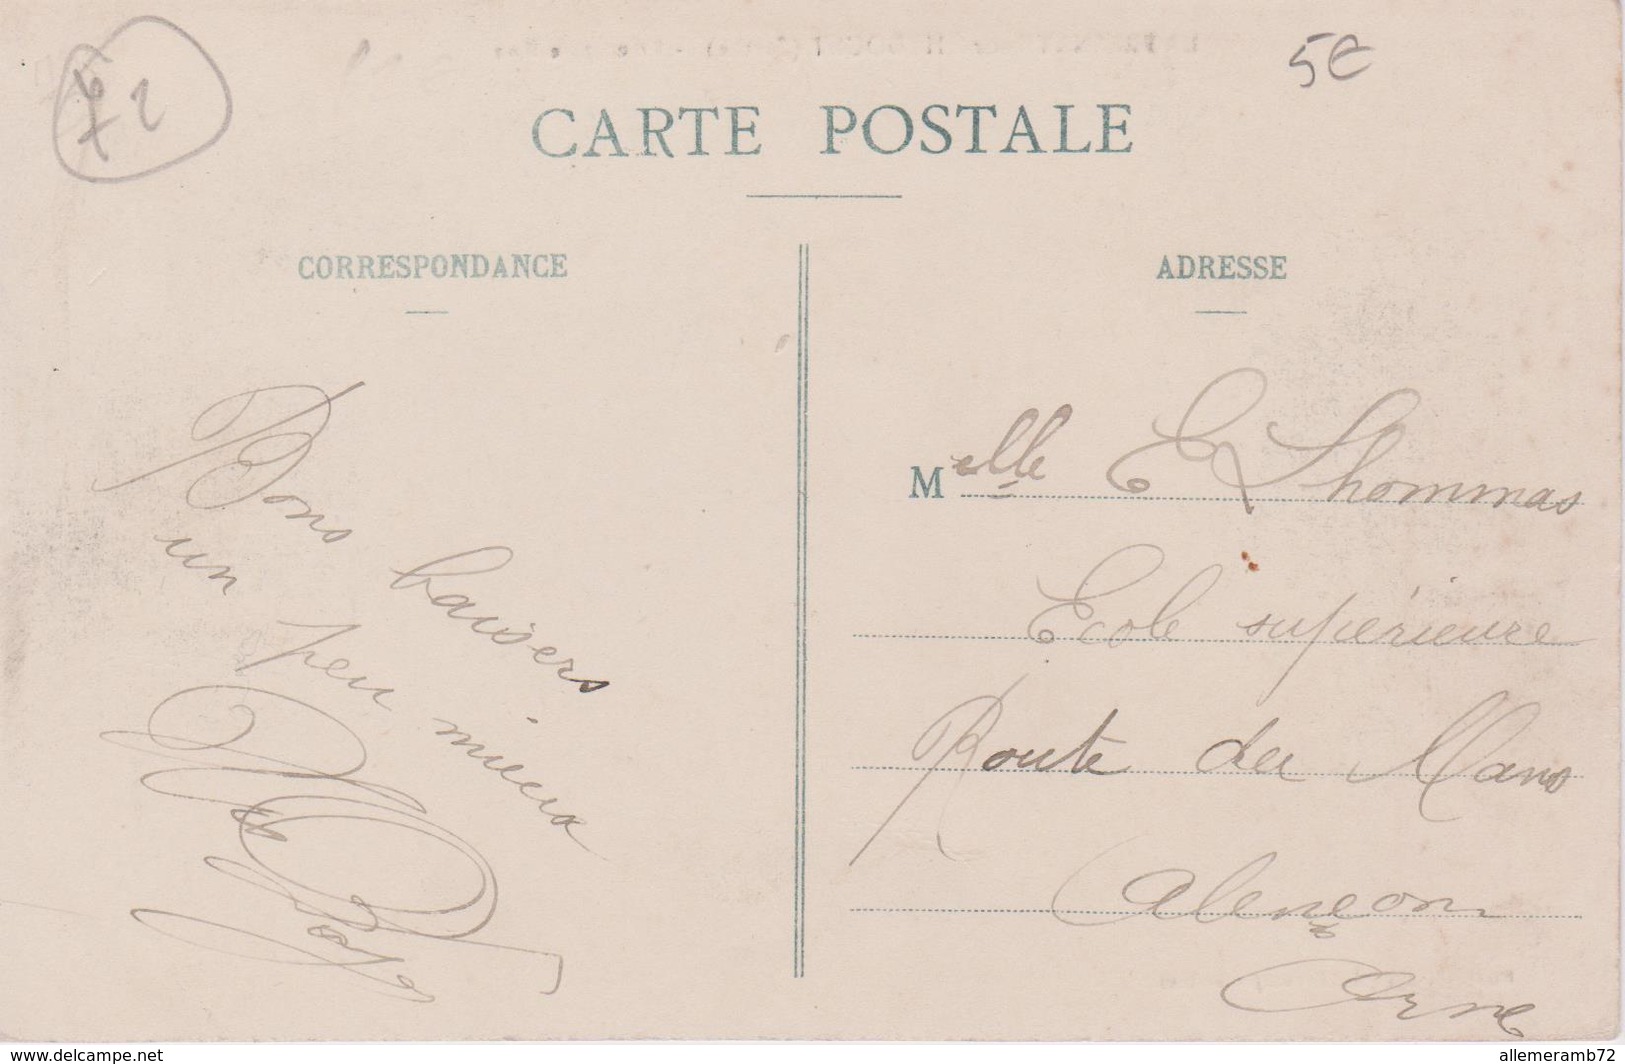 72
5€
CARTE POSTALE
CORRESPONDANCE
ADRESSE
Bons baisers
un peu mieux
Melle E Lhommas
Ecole supérieure
Route du Mans
Alençon
Orne
www.delcampe.net
allemeramb72